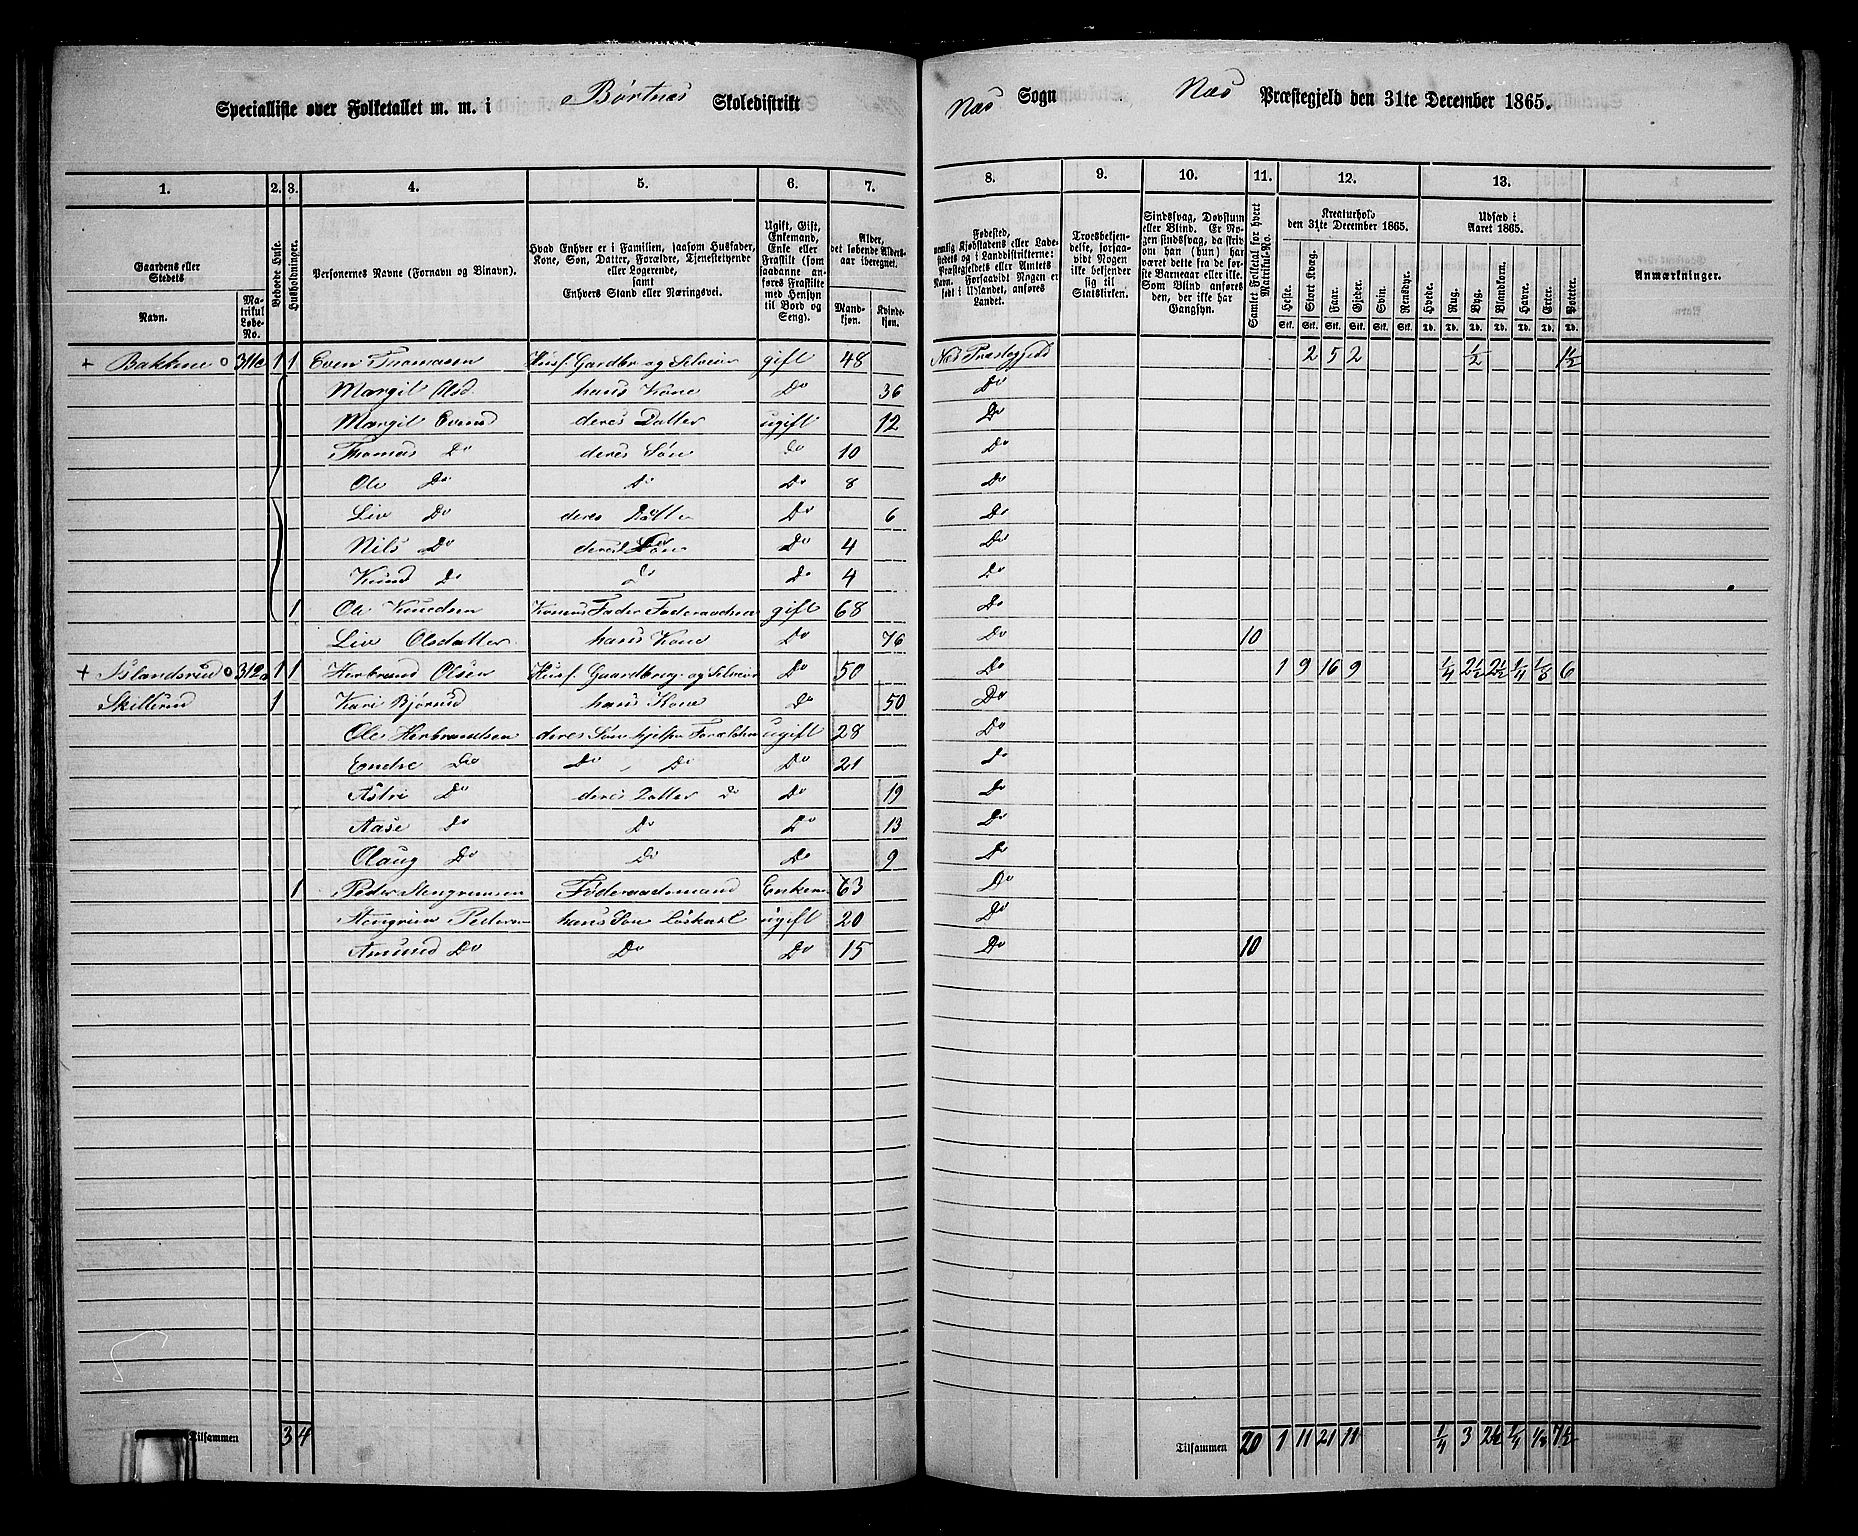 Specialliste over Folketallet m. m. i Børtnæs Skoledistrikt Næs Sogn Næs Præstegjeld den 31te December 1865.
1. 2. 3. 4. 5. 6. 7. 8. 9. 10. 11. 12. 13.
Gaardens eller Stedets
Navn.
Matrikul Løbe-No.
Beboede Huse.
Husholdninger.
Personernes Navne (Fornavn og Binavn).
Hvad Enhver er i Familien, saasom Husfader, Kone, Søn, Datter, Forældre, Tjenestetyende eller Logerende, samt Enhvers Stand eller Næringsvei.
Ugift, Gift, Enkemand, Enke eller Fraskilt (som saadanne anføres Fraskilte med Hensyn til Bord og Seng).
Alder, det løbende Aldersaar iberegnet.
Mandkjøn.
Kvindekjøn.
Fødested, nemlig Kjøbstadens eller Ladestedets og i Landdistrikterne: Præstegjeldets eller Amtets Navn. Forsaavidt Nogen er født i Udlandet, anføres Landet.
Troesbekjendelse, forsaavidt Nogen ikke bekjender sig til Statskirken.
Sindssvag, Døvstum eller Blind. Er Nogen sindssvag, da skriv om han (hun) har været dette fra de første Barneaar eller ikke. Som Blind anføres den, der ikke har Gangsyn.
Samlet Folketal for hvert Matrikul-No.
Kreaturhold den 31te December 1865.
Heste. Stort Kvæg. Faar. Gjeder. Svin. Rensdyr.
Stk. Stk. Stk. Stk. Stk. Stk.
Udsæd i Aaret 1865.
Hvede. Rug. Byg. Blandkorn. Havre. Erter. Poteter.
Td. Td. Td. Td. Td. Td. Td.
Anmærkninger.
+ Bakkene o 311c 1 1 Even Thomasen Husf Gaardbr og Selveier gift 48 Næs Præstegjeld 2 5 2 1/2 1 1/2
Margit Olsd. hans Kone Do 36 Do
Margit Evensd deres Datter ugift 12 Do
Thomas Do deres Søn Do 10 Do
Ole Do Do Do 8 Do
Liv Do deres Datter Do 6 Do
Nils Do deres Søn Do 4 Do
Knud Do Do Do 4 Do
1 Ole Knudsen Konens Fader gift 68 Do
Liv Olsdatter hans Kone Do 76 Do 10
+ Islandsrud o 312a 1 1 Herbrand Olsen Husf. Gaardbrug. og Selveier Do 50 Do 1 9 16 9 1/4 2 1/2 2 1/2 1/4 1/8 6
Skillerud 1 Kari Bjørnsd hans Kone Do 50 Do
Ole Herbrandsen deres Søn hjelper Forældre ugift 28 Do
Endre Do Do Do Do 21 Do
Astri Do deres Datter Do Do 19 Do
Aase Do Do Do 13 Do
Olaug Do Do Do 9 Do
1 Peder Stengrimsen Føderaadsmand Enkem 63 Do
Stengrim Pedersen hans Søn Løskarl ugift 20 Do
Amund Do Do Do 15 Do 10
Tilsammen 3 4 Tilsammen 20 1 11 21 11 1/4 3 2 1/2 1/4 1/8 7 1/2